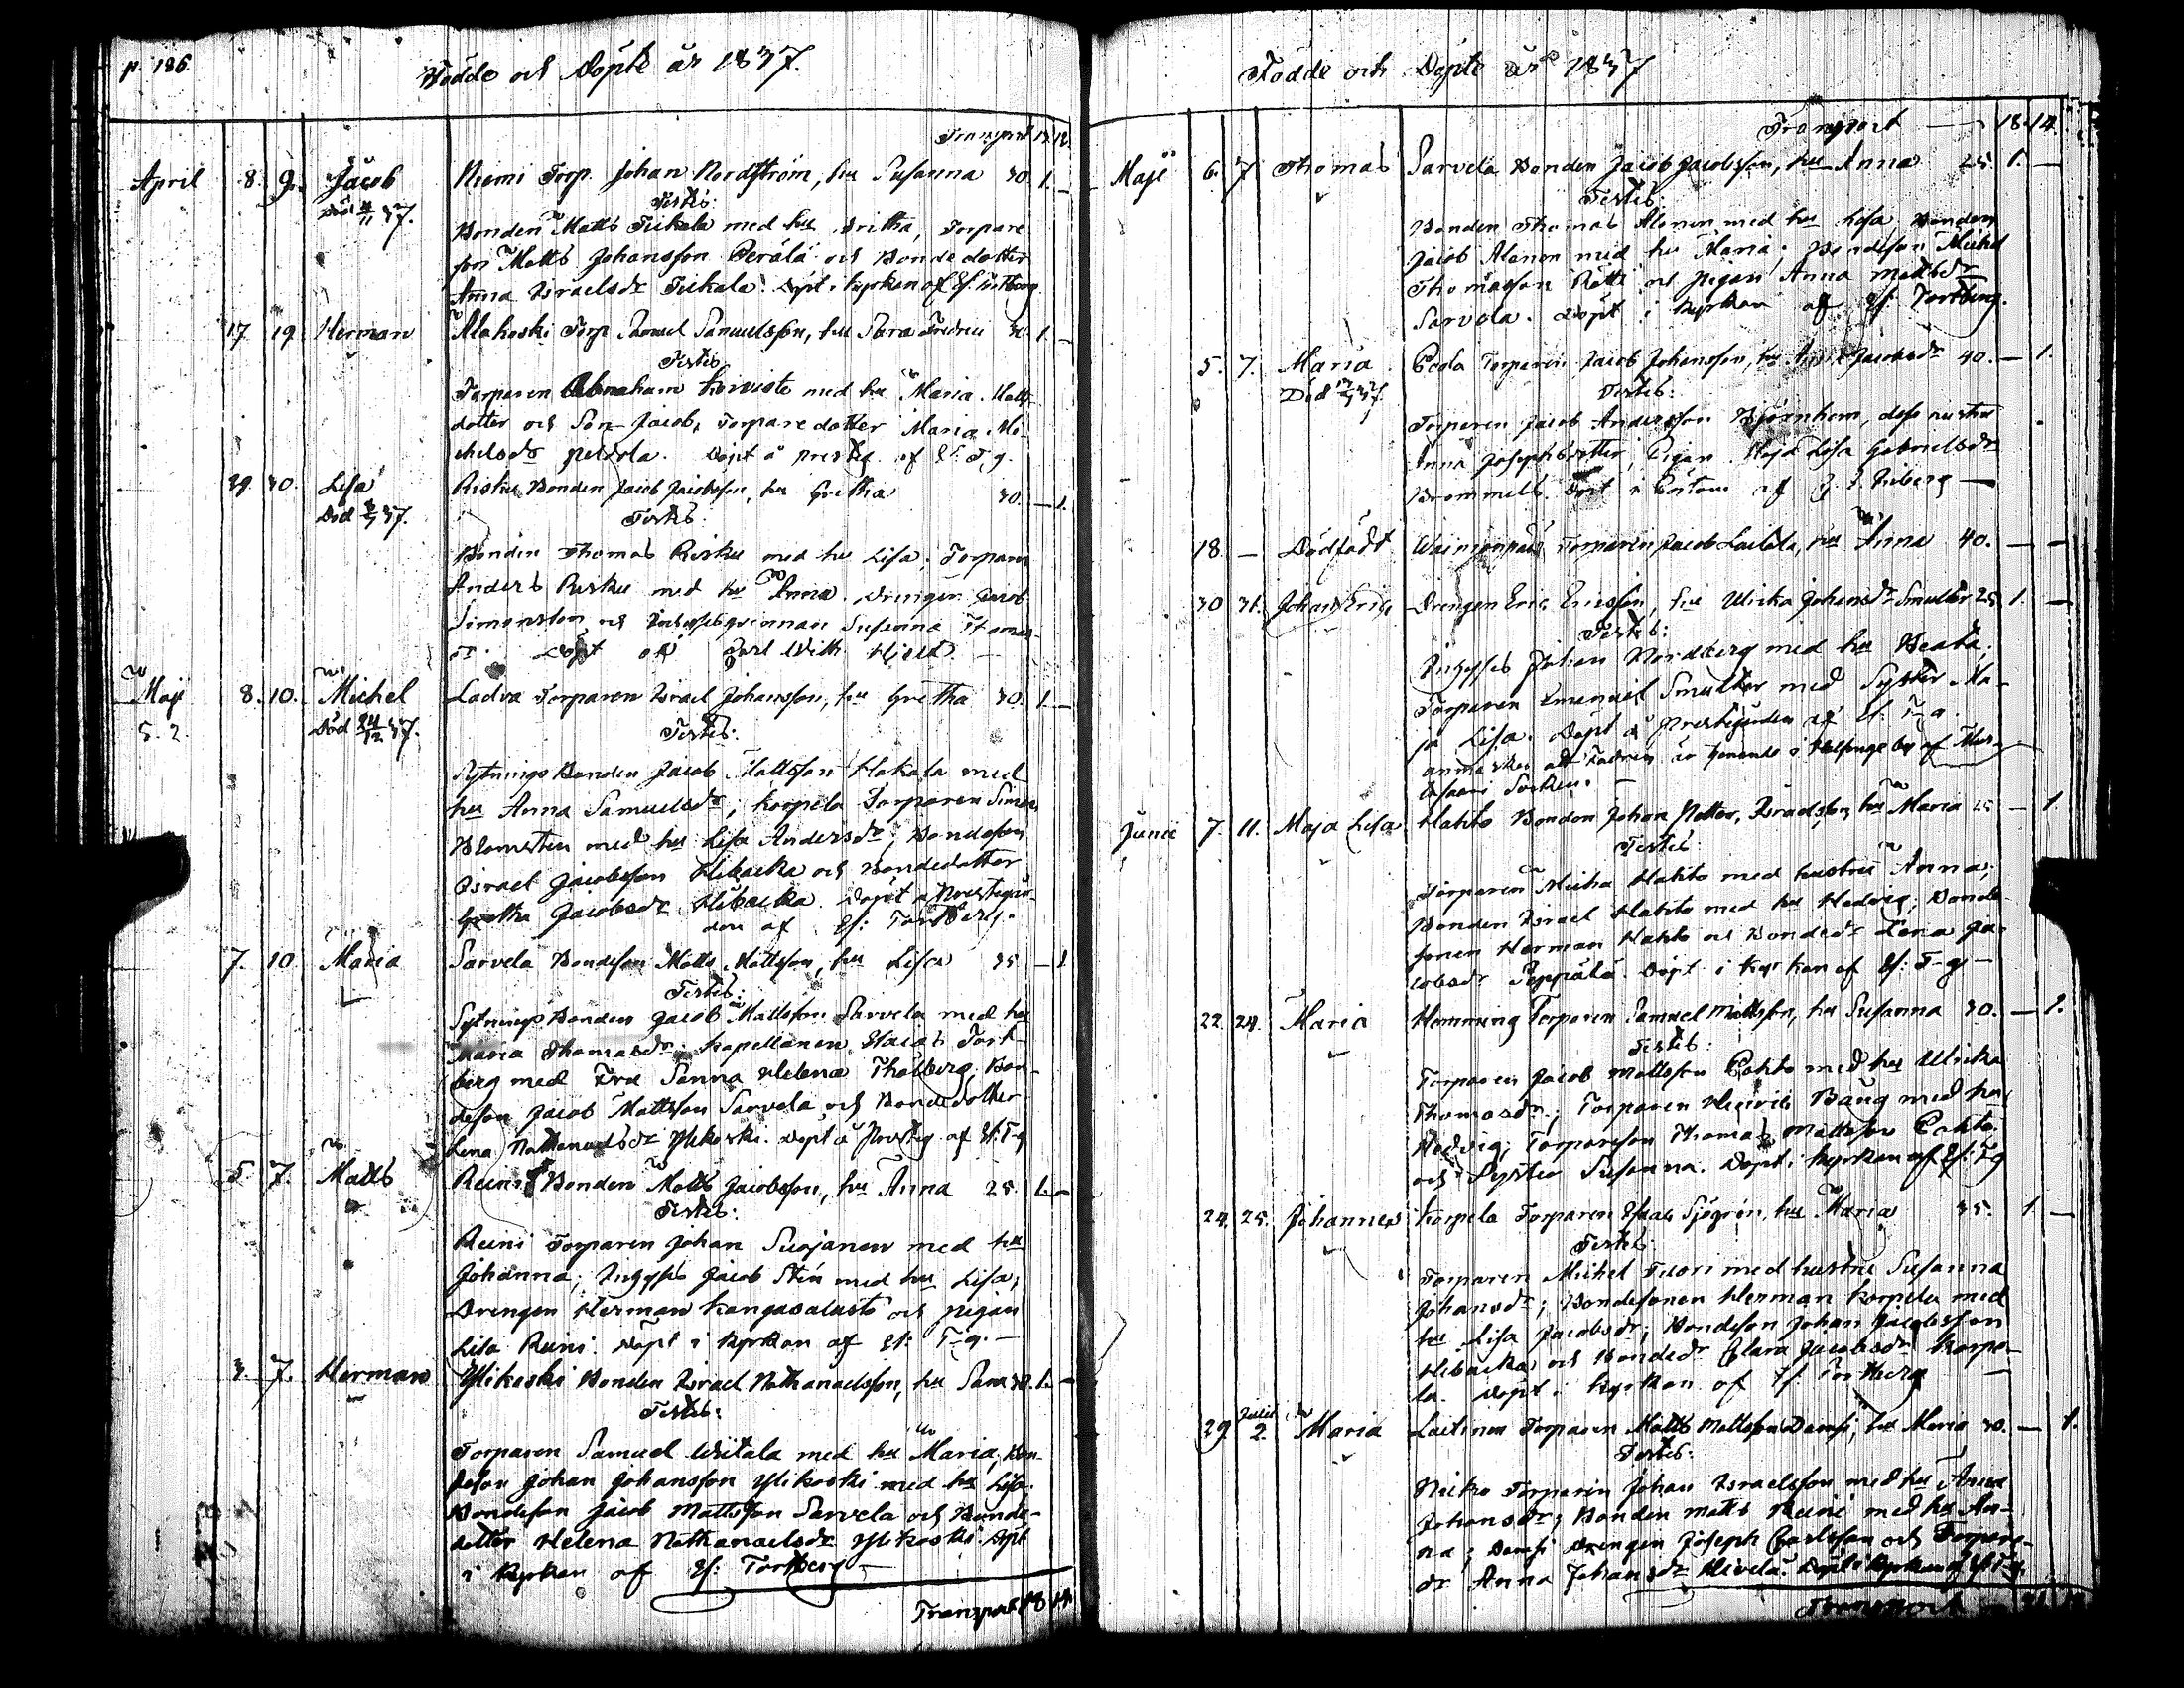 p. 186.
Födde och Döpte år 1837.
Transport
April 8. 9. Jacob Niemi Torp. Johan Nordström, hu Susanna 30. 1. –
Död 4/11 37. Testes:
Bonden Matts Tiikala med hu Britha, Torpare
son Matts Johansson Perälä och Bonde dotter
Anna Israelsdr Tiikala. Döpt i kyrkan af
17 19 Herman Alakoski Torp Samuel Samuelsson, hu Sara 1. –
Testes
Torparen Abraham med hu Maria Matts
dotter och Son Jacob, Torpare dotter Maria Mi-
chelsdr Peldola. Döpt å prestg. af Ef. T,g.
29. 30. Lisa Risku Bonden Jacob Jacobsson, hu Gretha 30. – 1.
Död 37. Testes:
Bonden Thomas Risku med hu Lisa, Torparen
Anders Risku med hu Anna. Drengen Jacob
Simonsson och Susanna Thomas-
dr. Döpt af Carl With
Maji 8. 10. Michel Ladva Torparen Israel Johansson, hu Gretha 30. 1. –
5. 2. Död 24/12 37. Testes:
Sytnings Bonden Jacob Mattsson Hakala med
hu Anna Samuelsdr; Korpela Torparen Simon
Blomsten med hu Lisa Andersdr; Bondeson
Israel Jacobsson Hibacka och Bondedotter
Gretha Jacobsdr Hibacka. Döpt å Prestegår-
den af Ef: Tortberg.
7. 10. Maria Sarvela Bondeson Matts Mattsson, hu Lisa 35 – 1
Testes:
Sytnings Bonden Jacob Mattsson Sarvela med hu
Maria Thomasdr; Kapellanen Tort-
berg med Fru Sanna Helena Thölberg, Bon-
deson Jacob Mattsson Sarvela och Bondedotter
Lena Nathanaelsdr Ylikoski. Döpt å Prestg. af Ef: T-g
5. 7. Matts Reini Bonden Matts Jacobsson, hu Anna 28. 1. –
Testes:
Reini Torparen Johan Suojanen med hu
Johanna, Inhyses Jacob Stén med hu Lisa;
Drengen Herman Kangasalusta och pigan
Lisa Reini. Döpt i kyrkan af Ef: T-g. –
3. 7. Herman Ylikoski Bonden Israel Nathanaelsson, hu Sara 30. 1. –
Testes:
Torparen Samuel Wiitala med hu Maria; Bon-
deson Johan Johansson Ylikoski med hu Lisa;
Bondeson Jacob Mattsson Sarvela och Bonde-
dotter Helena Nathanaelsdr Ylikoski. Döpt
i Kyrkan af Ef: Tortberg –
Transport 18 14
Födde och Döpte år 1837
Transport – 18. 14.
Maji 6. 7 Thomas Sarvela Bonden Jacob Jacobsson, hu Anna 25. 1. –
Testes:
Bonden Thomas Alanen med hu Lisa, Bonden
Jacob Alanen med hu Maria; Bondeson Michel
Thomasson Rätti och Pigan Anna Mattsdr
Sarvela. Döpt i Kyrkan af Ef: Tortberg.
5. 7. Maria Torparen Jacob Johansson, hu Jacobsdr 40. – 1.
Död 37. Testes:
Torparen Jacob Andersson Björnhem, dess hustru
Anna Josephsdotter, Pigan Maja Lisa Gabrielsdr
Brommels. Döpt i af
18. – Dödfödt Torparen Jacob Laitila, hu Anna 40. – –
30 31. Johan Eric Drengen Eric Ericsson, hu Ulrika Johansdr Smulter 25 1. –
Testes:
Inhyses Johan Nordberg med hu Beata;
Torparen Emanuel Smulter med Syster Ma-
ja Lisa. Döpt å Prestegården af Ef: T-g.
anmärkes att Fadren är hemma i Helsinge by af
Sochen. –
Junii 7. 11. Maja Lisa Hakto Bonden Johan Petter Israelsson, hu Maria 25 – 1.
Testes:
Torparen Micha Hakto med hustru Anna;
Bonden Israel Hakto med hu Hedvig; Bonde
sonen Herman Hakto och Bondedr Lena Ja-
cobsdr Seppälä. Döpt i kyrkan af Ef: T-g –
22. 24. Maria Hemming Torparen Samuel Mattsson, hu Susanna 30. – 1.
Testes:
Torparen Jacob Mattsson med hu Ulrika
Thomasdr; Torparen Henric Bång med hu
Hedvig; Torpareson Thomas Mattsson
och Syster Susanna. Döpt i kyrkan af Ef: T-g
24. 25. Johannes Korpela Torparen Esaias Sjögren, hu Maria 35. 1 –
Testes:
Torparen Michel Tuori med hustru Susanna
Johansdr; Bondesonen Herman Korpela med
hu Lisa Jacobsdr; Bondeson Johan Jacobsson
Hibacka och Bondedr Clara Jacobsdr Korpe-
la. Döpt i kyrkan af Ef. Tortberg –
29. Julii 2. Maria Laitinen Torparen Matts Mattsson Damsi, hu Maria 30. – 1.
Testes:
Torparen Johan Israelsson med hu Anna
Johansdr; Bonden Matts Reini med hu An-
na; Damsi Drengen Joseph Carlsson och Torpare-
dr Anna Johansdr Kivelä. Döpt i kyrkan af Ef: T-g.
Transport